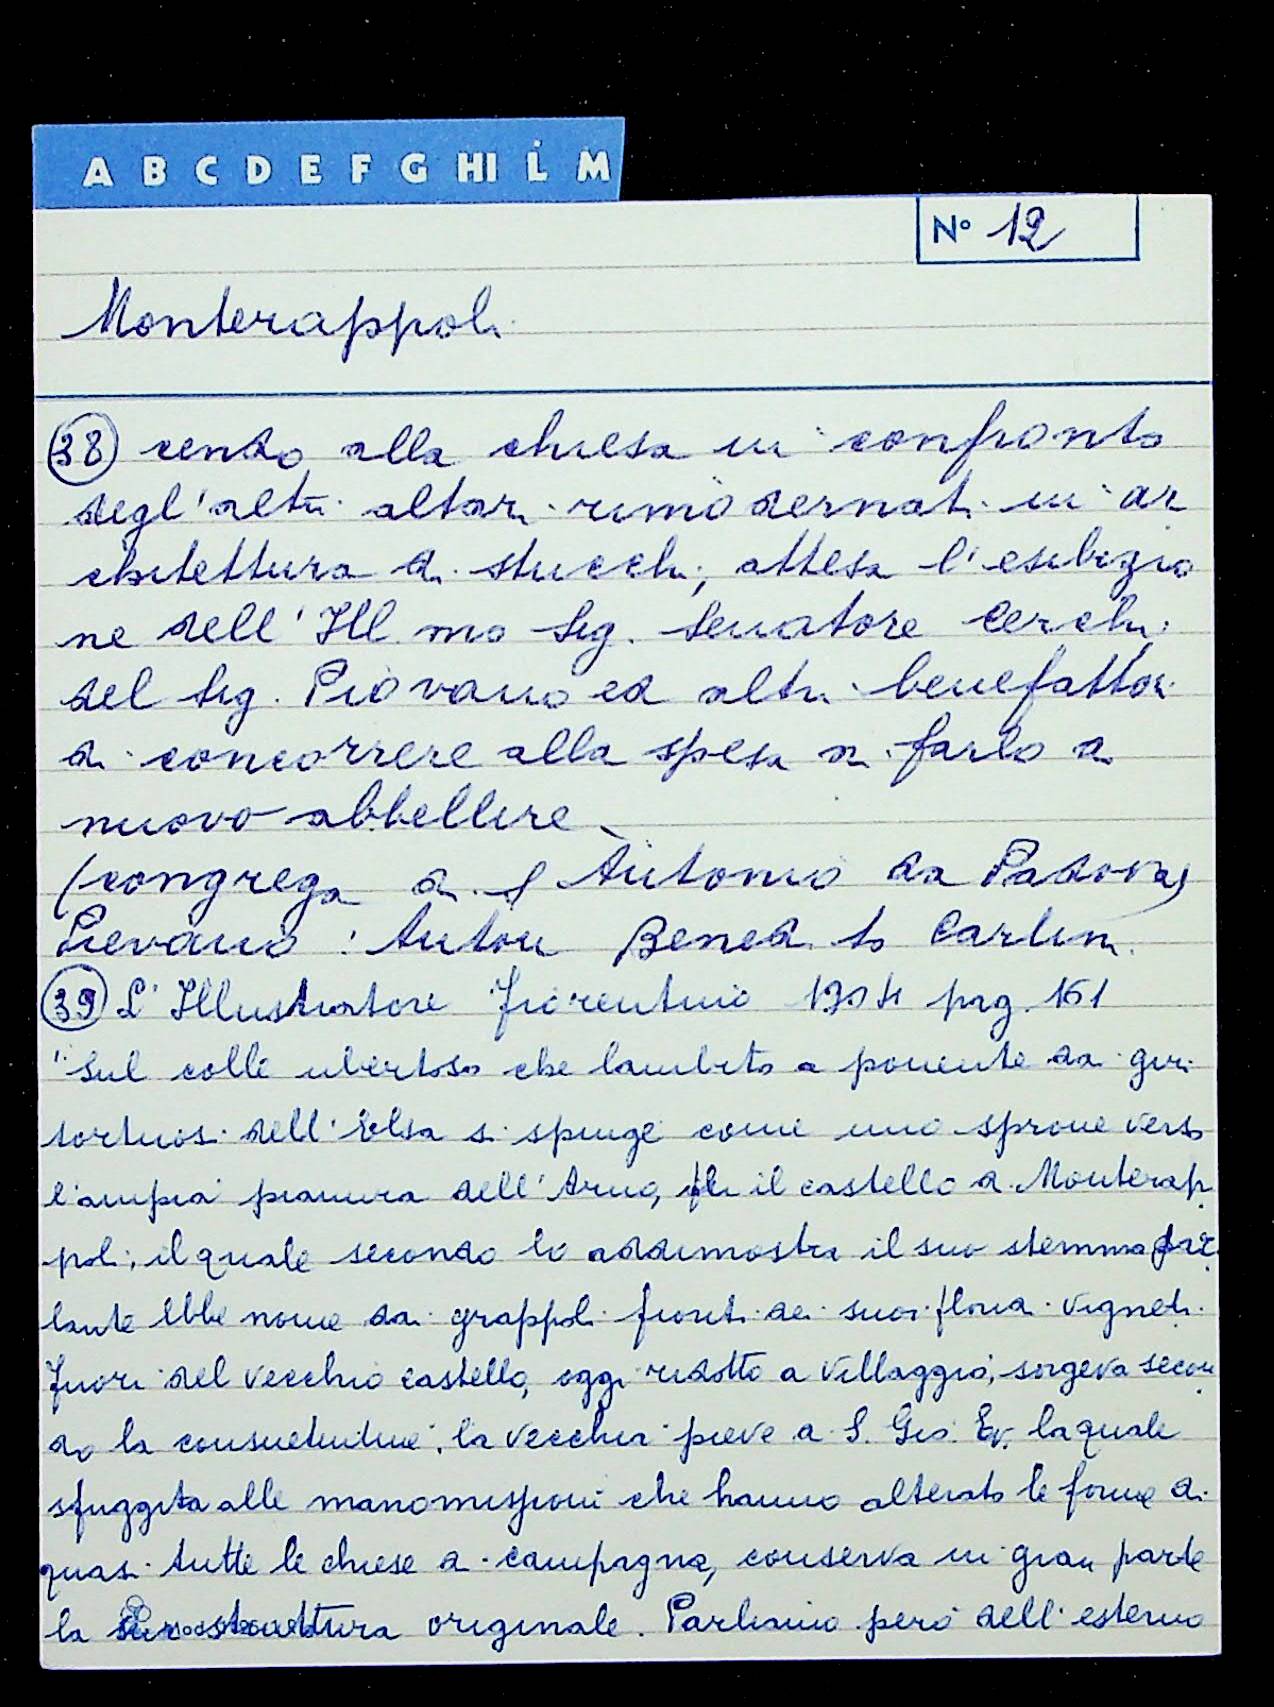 A B C D E F G HI L M
N° 12
Monterappoli
38 cendo alla chiesa in confronto
degl'altri altari rimodernati in ar
chitettura di stucchi, attesa l'esibizio
ne dell'Ill.mo Sig. Senatore Cerchi
del Sig. Piovano ed altri benefattori
di concorrere alla spesa di farlo di
nuovo abbellire
(congrega di S Antonio da Padova)
Pievano: Anton Bened.to Carlini
39 L'Illustratore Fiorentino 1904 pag. 161
"Sul colle ubertoso che lambito a ponente dai giri
tortuosi dell'Elsa si spinge come uno sprone verso
l'ampia pianura dell'Arno, il castello di Monterap
poli, il quale secondo lo addimostra il suo stemma par
lante ebbe nome dai grappoli fioriti dei suoi floridi vigneti.
Fuori del vecchio castello, oggi ridotto a villaggio, sorgeva secon
do la consuetudine, la vecchia pieve di S. Gio. Ev. la quale
sfuggita alle manomissioni che hanno alterato le forme di
quasi tutte le chiese di campagna, conserva in gran parte
la struttura originale. Parliamo però dell'esterno